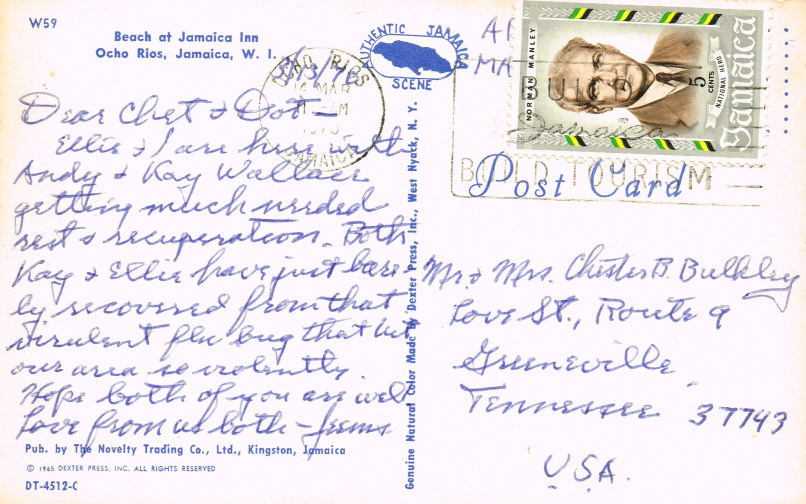 W59
Beach at Jamaica Inn
Ocho Rios, Jamaica, W. I.
AUTHENTIC JAMAICA
SCENE
OCHO RIOS
14 MAR
AM
JAMAICA
NORMAN MANLEY
5
CENTS
NATIONAL HERO
Jamaica
Jamaica
TOURISM
Post Card
Dear Chet & Dot —
Ellie & I are here with
Andy & Kay Wallace
getting much needed
rest & recuperation. Both
Kay & Ellie have just bare-
ly recovered from that
virulent flu bug that hit
our area so violently.
Hope both of you are well
Love from us both — Jeems
Pub. by The Novelty Trading Co., Ltd., Kingston, Jamaica
© 1965 DEXTER PRESS, INC. ALL RIGHTS RESERVED
DT-4512-C
Genuine Natural Color Made By Dexter Press, Inc., West Nyack, N. Y.
Mr & Mrs. Chester B. Bulkley
Love St., Route 9
Greeneville
Tennessee 37743
U.S.A.